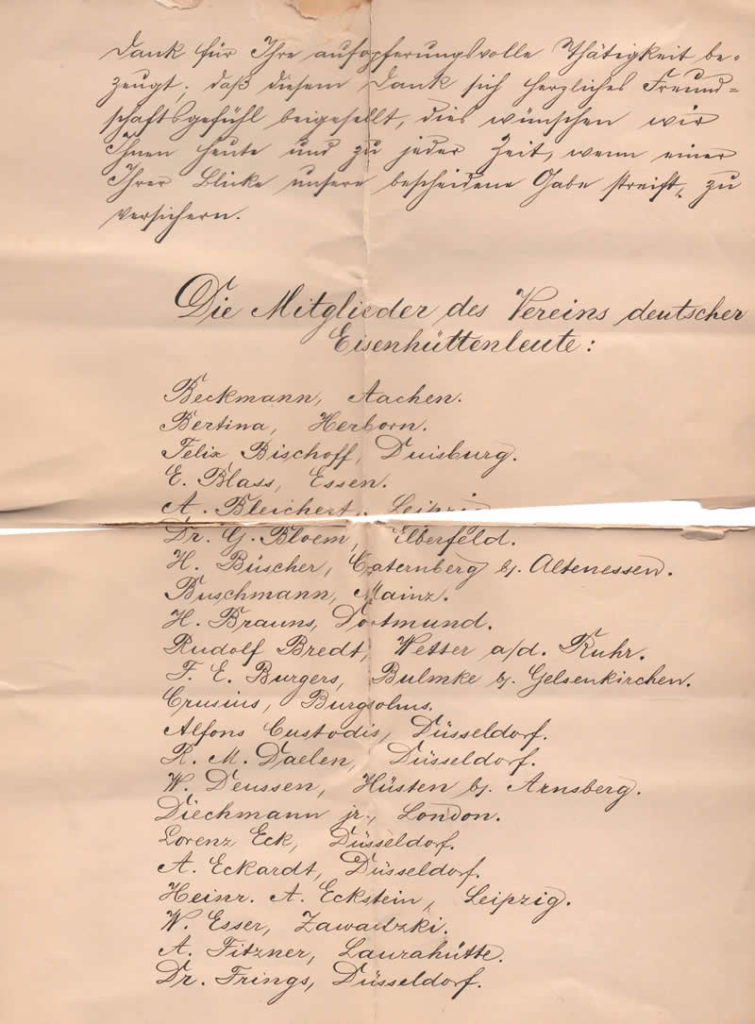 Dank für Ihre aufopferungsvolle Thätigkeit be-
zeugt; daß diesem Dank sich herzliches Freund-
schaftsgefühl beigesellt, dies wünschen wir
Ihnen heute und zu jeder Zeit, wenn einer
Ihrer Blicke unsere bescheidene Gabe streift, zu
versichern.
Die Mitglieder des Vereins deutscher
Eisenhüttenleute:
Beckmann, Aachen.
Bertina, Herborn.
Felix Bischoff, Duisburg.
E. Blass, Essen.
A. Bleichert, Leipzig
Dr. G. Bloem, Elberfeld.
H. Büscher, Caternberg b/. Altenessen.
Buschmann, Mainz.
H. Brauns, Dortmund.
Rudolf Bredt, Wetter a/d. Ruhr.
F. E. Burgers, Bulmke b/. Gelsenkirchen.
Crusius, Burgsolms.
Alfons Custodis, Düsseldorf.
R. M. Daelen, Düsseldorf.
W. Deussen, Hüsten b/. Arnsberg.
Diechmann jr., London.
Lorenz Eck, Düsseldorf.
A. Eckardt, Düsseldorf.
Heinr. A. Eckstein, Leipzig.
W. Esser, Zawadzki.
A. Fitzner, Laurahütte.
Dr. Frings, Düsseldorf.